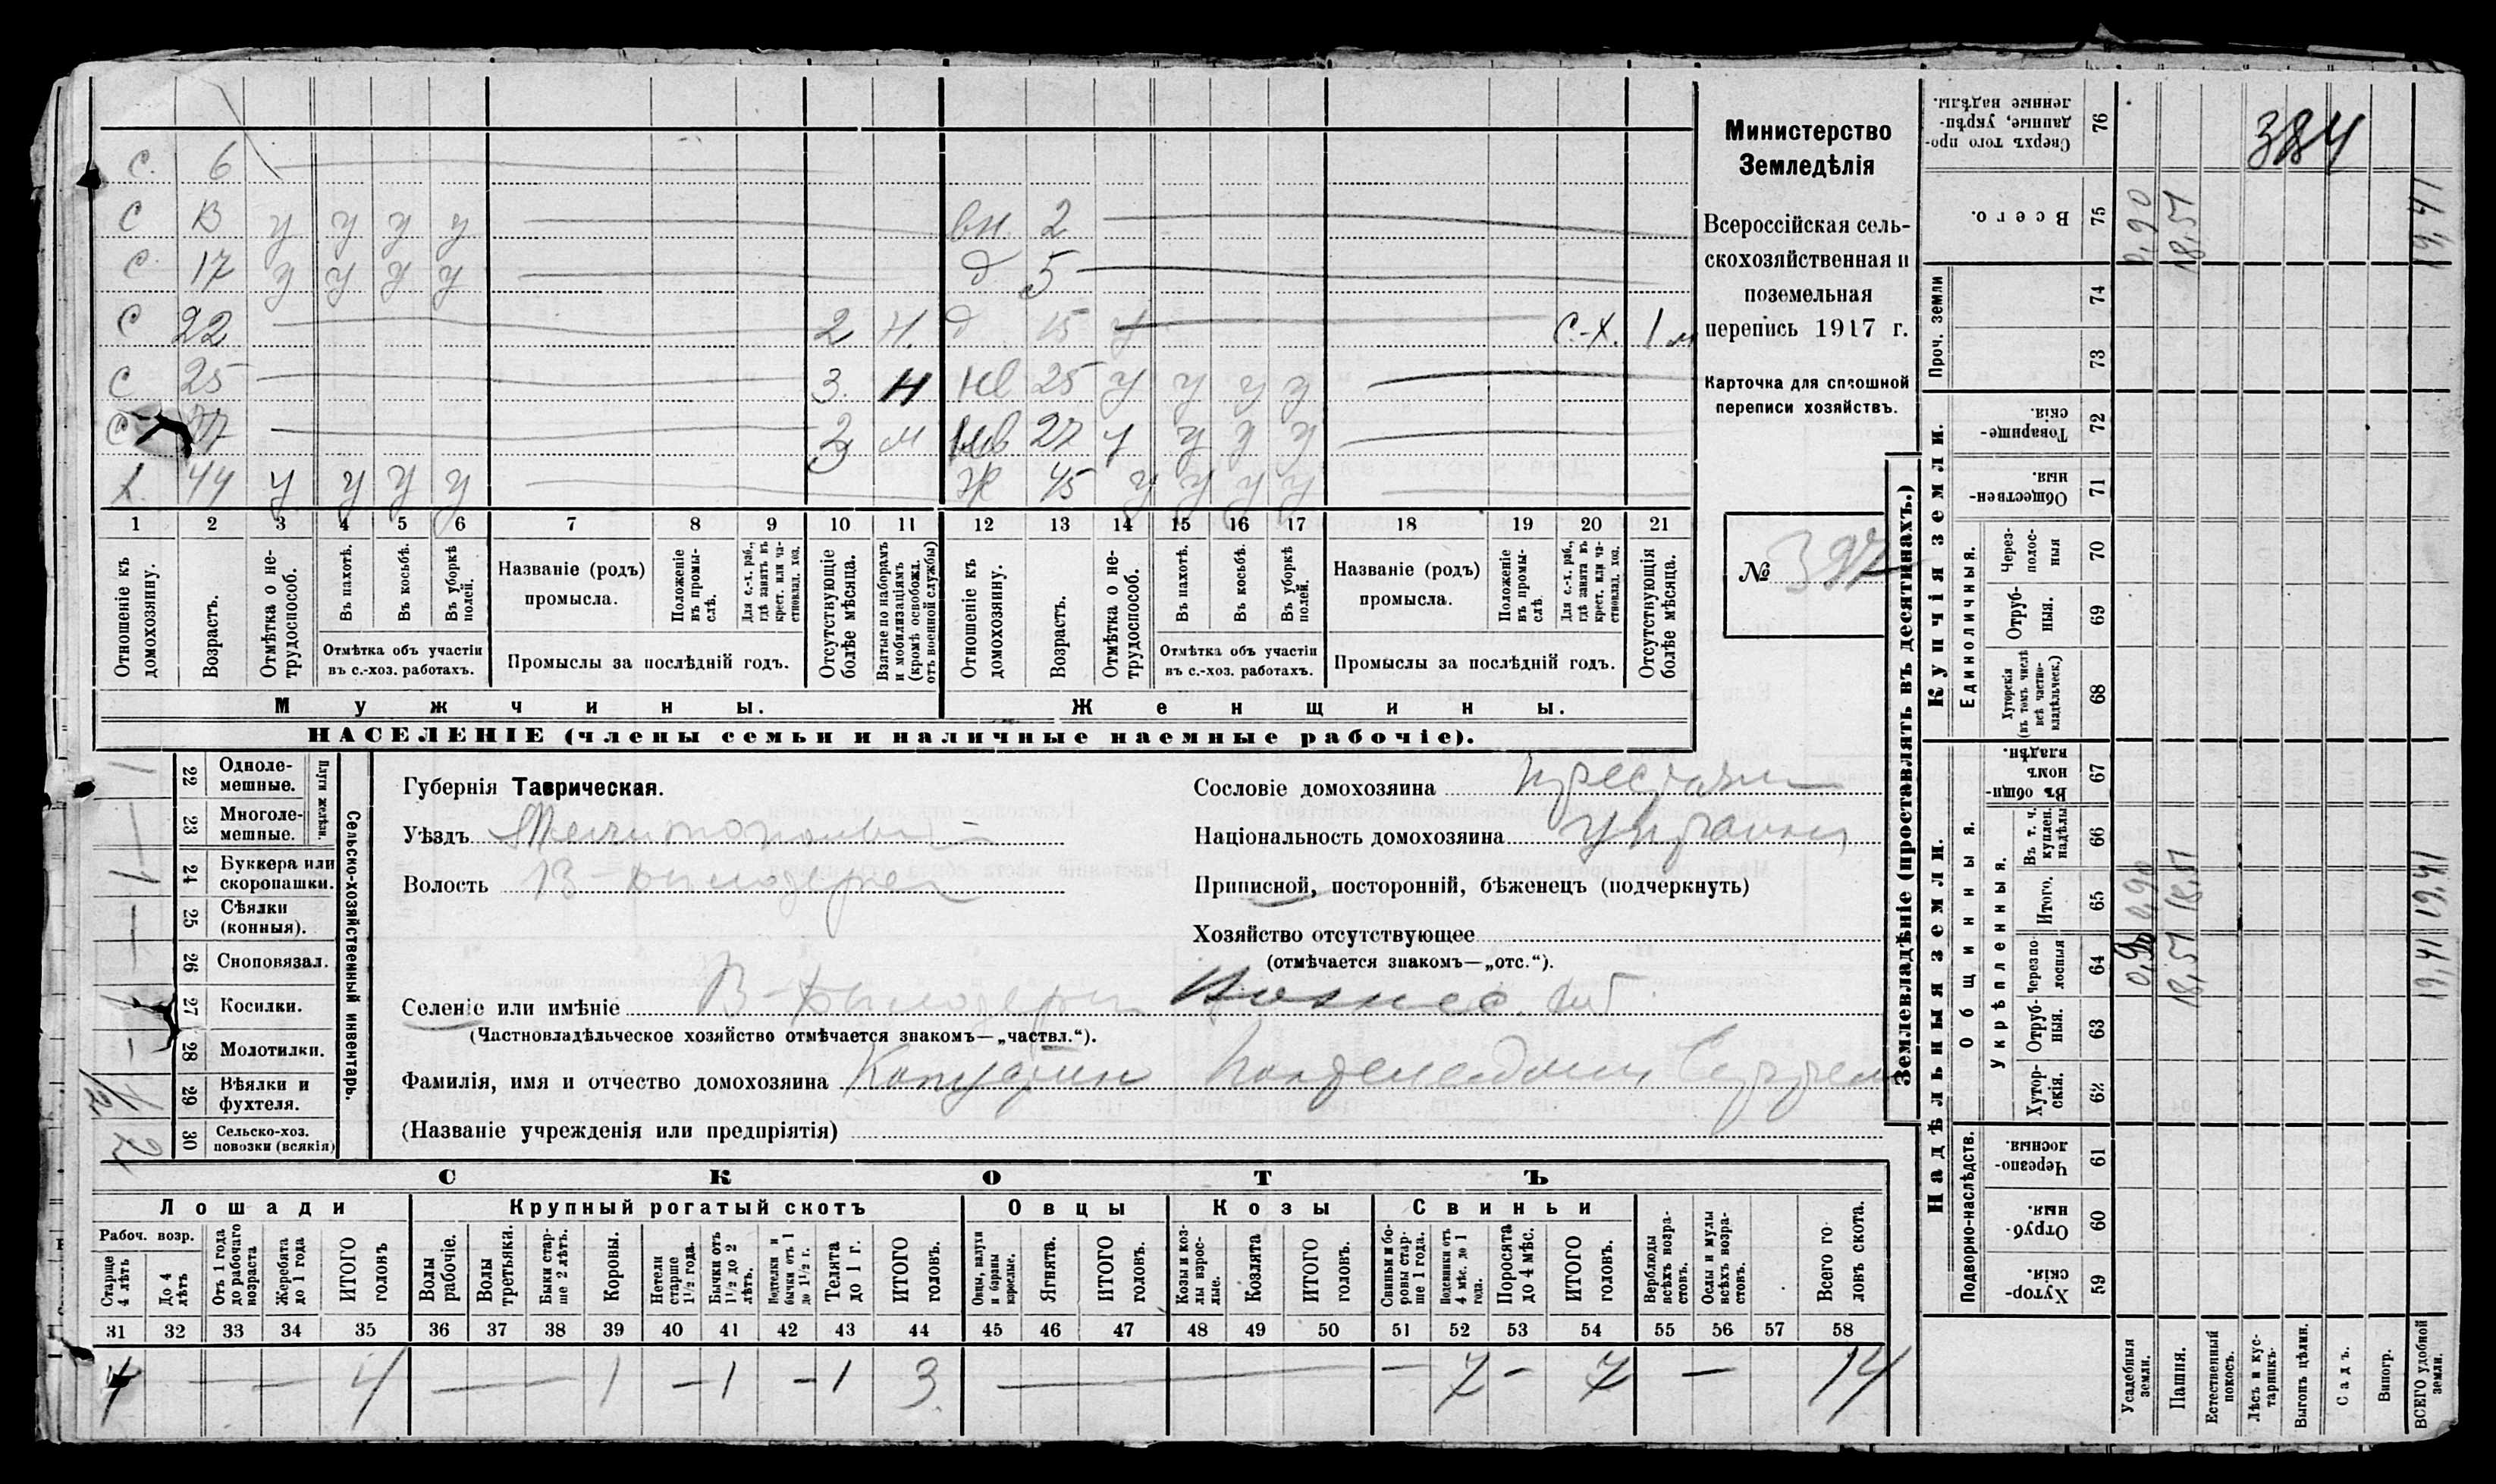 С. 6
С 13 у у у у вн. 2
С. 17 у у у у д 5
С 22 2 Н. д 15 у с-х. 1 м
С 25 3. Н Нв 25 у у у у
С 3 м Нв 27 у у у у
1. 44 у у у у Ж 45 у у у у
1 2 3 4 5 6 7 8 9 10 11 12 13 14 15 16 17 18 19 20 21
Отношеніе къ домохозяину.
Возрастъ.
Отмѣтка о нетрудоспособ.
Въ пахотѣ.
Въ косьбѣ.
Въ уборкѣ полей.
Отмѣтка объ участіи
въ с.-хоз. работахъ.
Названіе (родъ)
промысла.
Положеніе въ промыслѣ.
Для с.-х. раб., гдѣ занятъ въ крест. или частновлад. хоз.
Промыслы за послѣдній годъ.
Отсутствующіе болѣе мѣсяца.
Взятые по наборамъ и мобилизаціямъ (кромѣ освобожд. отъ военной службы)
Отношеніе къ домохозяину.
Возрастъ.
Отмѣтка о нетрудоспособ.
Въ пахотѣ.
Въ косьбѣ.
Въ уборкѣ полей.
Отмѣтка объ участіи
въ с.-хоз. работахъ.
Названіе (родъ)
промысла.
Положеніе въ промыслѣ
Для с.-х. раб., гдѣ занята въ крест. или частновлад. хоз.
Промыслы за послѣдній годъ.
Отсутствующія болѣе мѣсяца.
Мужчины.
Женщины.
НАСЕЛЕНІЕ (члены семьи и наличные наемные рабочіе).
Министерство
Земледѣлія
Всероссійская сель-
скохозяйственная и
поземельная
перепись 1917 г.
Карточка для сплошной
переписи хозяйствъ.
№ 397
Сельско-хозяйственный инвентарь.
Плуги желѣзн.
1 22 Одноле-
мешные.
— 23 Многоле-
мешные.
1 24 Буккера или
скоропашки.
— 25 Сѣялки
(конныя).
26 Сноповязал.
1 27 Косилки.
— 28 Молотилки.
1/2 29 Вѣялки и
фухтеля.
2 30 Сельско-хоз.
повозки (всякія)
Губернія Таврическая.
Уѣздъ Мелитопольский
Волость В-Белозерка
Сословіе домохозяина крестьян
Національность домохозяина украинец
Приписной, посторонній, бѣженецъ (подчеркнуть)
Хозяйство отсутствующее
(отмѣчается знакомъ—„отс.“).
Селеніе или имѣніе В-Белозерка Вознес.
(Частновладѣльческое хозяйство отмѣчается знакомъ—„частвл.“).
Фамилія, имя и отчество домохозяина Капустин
(Названіе учрежденія или предпріятія)
СКОТЪ
Лошади Крупный рогатый скотъ Овцы Козы Свиньи
Рабоч. возр.
Старше 4 лѣтъ
До 4 лѣтъ
Отъ 1 года до рабочаго возраста
Жеребята до 1 года
ИТОГО головъ
Волы рабочіе.
Волы третьяки.
Быки старше 2 лѣтъ.
Коровы.
Нетели старше 1½ года.
Бычки отъ 1½ до 2 лѣтъ.
Нетелки и бычки отъ 1 до 1½ г.
Телята до 1 г.
ИТОГО головъ.
Овцы, валухи и бараны взрослые.
Ягнята.
ИТОГО головъ.
Козы и козлы взрослые.
Козлята
ИТОГО головъ.
Свиньи и боровы старше 1 года.
Подсвинки отъ 4 мѣс. до 1 года.
Поросята до 4 мѣс.
ИТОГО головъ.
Верблюды всѣхъ возрастовъ.
Ослы и мулы всѣхъ возрастовъ.
Всего головъ скота.
31 32 33 34 35 36 37 38 39 40 41 42 43 44 45 46 47 48 49 50 51 52 53 54 55 56 57 58
4 — — 4 — — 1 — 1 — 1 3 — — 7 — 7 — 14
Землевладѣніе (проставлять въ десятинахъ.)
Надѣльныя земли.
Купчія земли.
Проч. земли
Подворно-наслѣдств.
Общинныя.
Укрѣпленныя.
Единоличныя.
Сверхъ того проданные, укрѣпленные надѣлы. 76
Всего. 75
74
73
Товарищескія. 72
Общественныя. 71
Черезполосныя 70
Отрубныя. 69
Хуторскія (въ томъ числѣ всѣ частновладѣльческ.) 68
Въ общинномъ владѣн. 67
Въ т. ч. куплен. надѣлы 66
Итого. 65
Черезполосныя 64
Отрубныя. 63
Хуторскія. 62
Черезполосныя. 61
Отрубныя. 60
Хуторскія. 59
Усадебныя земли.
Пашня.
Естественный покосъ.
Лѣсъ и кустарникъ.
Выгонъ цѣлин.
Садъ.
Виногр.
ВСЕГО удобной земли.
384
0,90 18,51 19,41
0,90 18,51 19,41
0,90 18,51 19,41